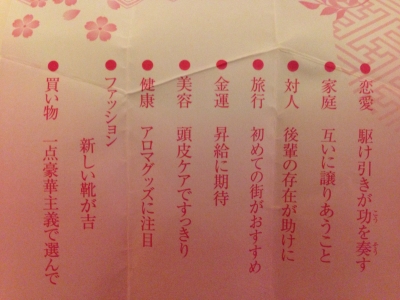 ●恋愛　駆け引きが功を奏す
●家庭　互いに譲りあうこと
●対人　後輩の存在が助けに
●旅行　初めての街がおすすめ
●金運　昇給に期待
●美容　頭皮ケアですっきり
●健康　アロマグッズに注目
●ファッション
新しい靴が吉
●買い物　一点豪華主義で選んで